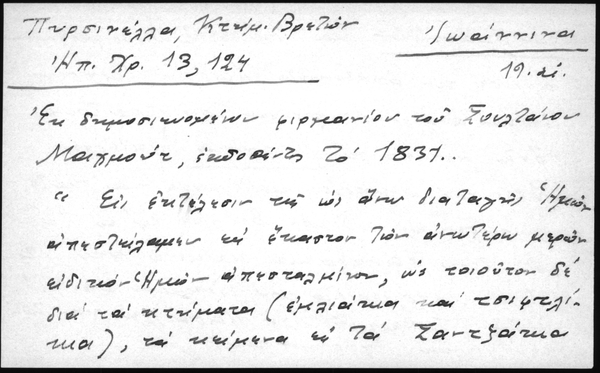 Πυρσινέλλα, Κτημ. Βρετών
Ἠπ. Χρ. 13, 124
Ἰωάννινα
19. αἰ.
Ἐκ δημοσιευομένου φιρμανίου τοῦ Σουλτάνου
Μαχμούτ, ἐκδοθέντος τό 1831..
" Εἰς ἐκτέλεσιν τῆς ὡς ἄνω διαταγῆς Ἡμῶν
ἀπεστείλαμεν εἰς ἕκαστον τῶν ἀνωτέρω μερῶν
εἰδικόν Ἡμῶν ἀπεσταλμένον, ὡς τοιοῦτον δέ
διά τά κτήματα (ἐμλιάκια καί τσιφτλί-
κια), τά κείμενα εἰς τά Σαντζάκια